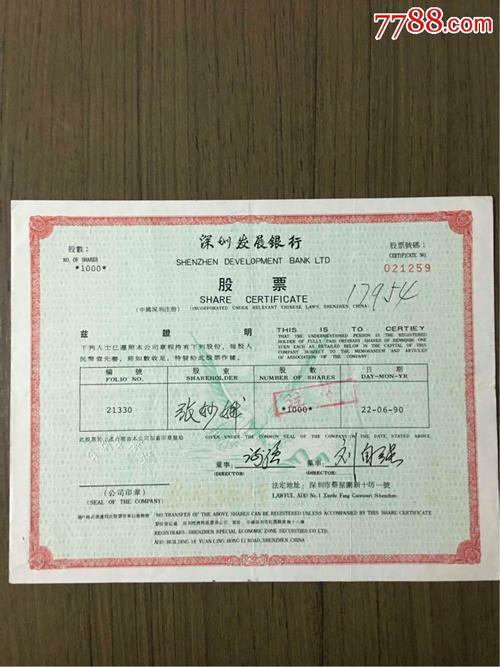 7788.com
深圳发展銀行
SHENZHEN DEVELOPMENT BANK LTD
股數：
NO. OF SHARES
*1000*
股票號碼：
CERTIFICATE NO.
021259
股票
SHARE CERTIFICATE
17954
(中國深圳注冊)
(INCORPORATED UNDER RELEVANT CHINESE LAWS, SHENZHEN, CHINA)
茲證明
下列人士已遵照本公司章程持有下列股份，每股人
民幣壹元整，經如數收足，特發給此股票作據。
THIS IS TO CERTIFY
THAT THE UNDERMENTIONED PERSON IS THE REGISTERED
HOLDER OF FULLY PAID ORDINARY SHARES OF RENMINBI ONE
YUEN EACH AS DETAILED BELOW IN THE CAPITAL OF THIS
COMPANY SUBJECT TO THE MEMORANDUM AND ARTICLES
OF ASSOCIATION OF THE COMPANY.
編號 股東 股數 日期
FOLIO NO. SHAREHOLDER NUMBER OF SHARES DAY-MON-YR
21330 张妙娥 *1000* 22-06-90
GIVEN UNDER THE COMMON SEAL OF THE COMPANY ON THE DATE STATED ABOVE
董事： 董事：
DIRECTOR DIRECTOR
刘自强
(公司印章)
(SEAL OF THE COMPANY)
法定地址：深圳市蔡屋圍新十坊一號
LAWFUL ADD: No.1 Xinshi Fang Caiwuwei, Shenzhen
NO TRANSFER OF THE ABOVE SHARES CAN BE REGISTERED UNLESS ACCOMPANIED BY THIS SHARE CERTIFICATE
REGISTRARS: SHENZHEN SPECIAL ECONOMIC ZONE SECURITIES CO. LTD.
ADD: BUILDING 16 YUAN LING HONG LI ROAD, SHENZHEN, CHINA